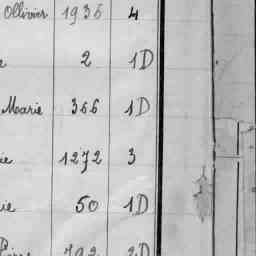 Ollivier 1936 4
e 2 1D
Marie 366 1D
ie 1272 3
ie 50 1D
Pierre 792 2D